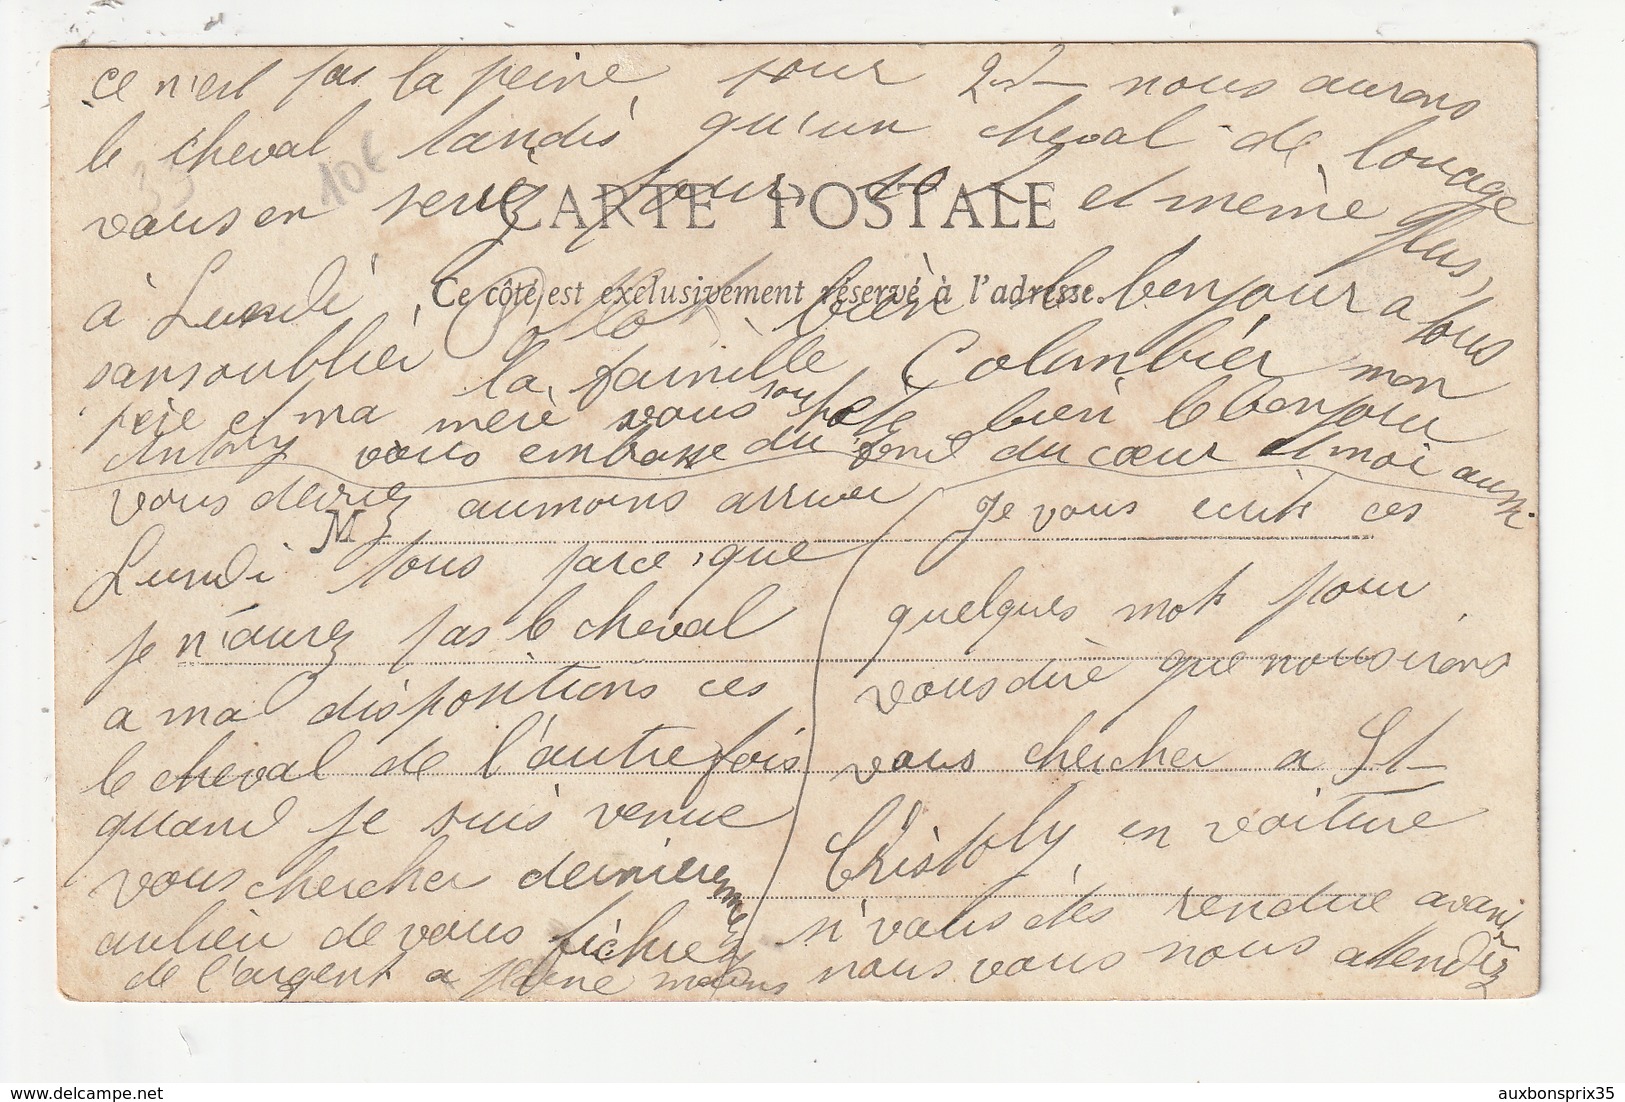 ce n'est pas la peine, pour 2 nous aurons
le cheval tandis qu'un cheval de louage
vous en serez pour 10 et même plus,
CARTE POSTALE
Ce côté est exclusivement réservé à l'adresse.
à Lundi, bien le bonjour a tous
sans oublier la famille Colombier mon
père et ma mère vous souhaite bien le bonjour
Antony vous embasse du fond du cœur et moi aussi
vous devriez aumoins arriver
M
Lundi tous parce que
je n'aurez pas le cheval
a ma dispositions ces
le cheval de l'autre fois
quand je suis venue
vous chercher dernièrement
aulieu de vous fichez
de l'argent a pleine mains
Je vous ecrit ces
quelques mots pour
vous dire que nous irons
vous chercher a St-
Cristoly en voiture
n'vous des rendue avant
nous vous nous attendez
10€
33
auxbonsprix35